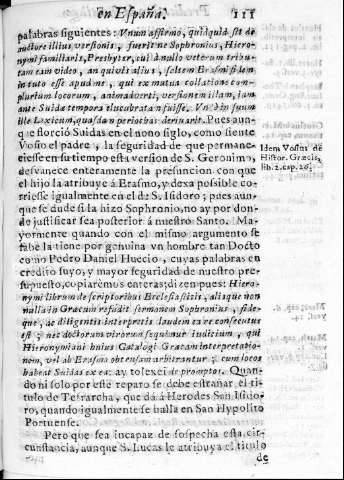 en España. 111
palabras siguientes: Vnum affirmo, quidquid sit de
auctore illius versionis, fuerit ne Sophronius, Hiero-
nymi familiaris, Presbyter, cui à nullo veterum tribu-
tam eam video, an quivis alius, saltem Erasmi si len-
in tuto esse apud me, qui ex mutua collatione com-
plurium locorum, animadverti, versionem illam, iam
ante Suidæ tempora elucubratam fuisse. Vnde in suum
ille Lexicum, quasdam periochas derivarit. Pues aun-
que floreciò Suidas en el nono siglo, como siente
Vosio el padre, la seguridad de que permane-
ciesse en su tiempo esta version de S. Geronimo,
desvanece enteramente la presuncion con que
el hijo la atribuye à Erasmo, y dexa possible cor-
riesse igualmente en el de S. Isidoro; pues aun-
que se dude si la hizo Sophronio, no ay por don-
de justificar sea posterior à nuestro Santo. Ma-
yormente quando con el mismo argumento se
sabe la tiene por genuina vn hombre tan Docto
como Pedro Daniel Huecio, cuyas palabras en
credito suyo, y mayor seguridad de nuestro pre-
supuesto, copiarèmos enteras; dizen pues: Hiero-
nymi librum de scriptoribus Ecclesiasticis, aliaque non
nulla in Græcum refudit sermonem Sophronius, fide-
que, ac diligentis interpretis laudem ex ea consecutus
est; nec doctorum virorum sequimur iudicium, qui
Hieronymiani huius Catalogi Græcam interpretatio-
nem, vel ab Erasmo obtrusam arbitrantur; cum locos
habeat Suidas ex ea
Quan-
do ni solo por este reparo se debe estrañar el ti-
tulo de Tetrarcha, que dà à Herodes San Isido-
ro, quando igualmente se halla en San Hypolito
Portuense.
Pero que sea incapaz de sospecha esta cir-
cunstancia, aunque S. Lucas le atribuya el titulo
de
Idem Vossius de
Histor. Græcis,
lib. 2. cap. 26.